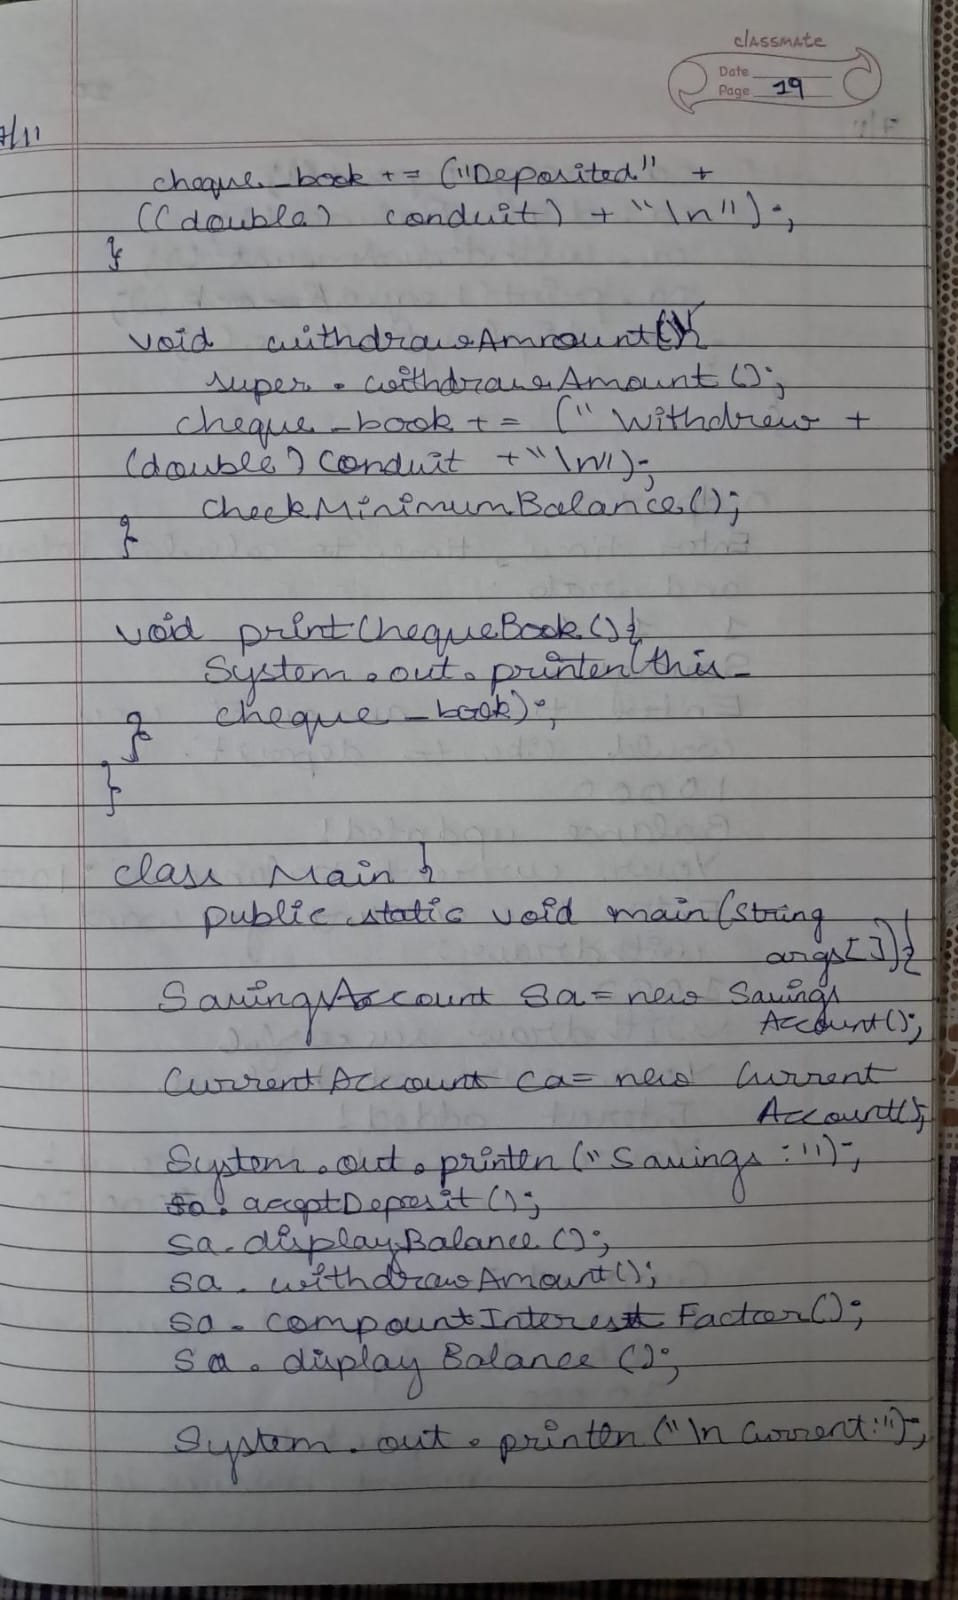 classmate
Date
Page 19
7/11
cheque_book += ("Deposited" +
((double) conduit) + "\n");
}
void withdrawAmount(){
super.withdrawAmount();
cheque_book += ("Withdrew +
(double) conduit +"\n");
checkMinimumBalance();
}
void printChequeBook(){
System.out.println(this.
cheque_book);
}
}
class Main {
public static void main(String
args[]){
SavingsAccount sa = new Savings
Account();
CurrentAccount ca = new Current
Account();
System.out.println("Savings:");
sa.acceptDeposit();
sa.displayBalance();
sa.withdrawAmount();
sa.compountInterestFactor();
sa.displayBalance();
System.out.println("\nCurrent:");